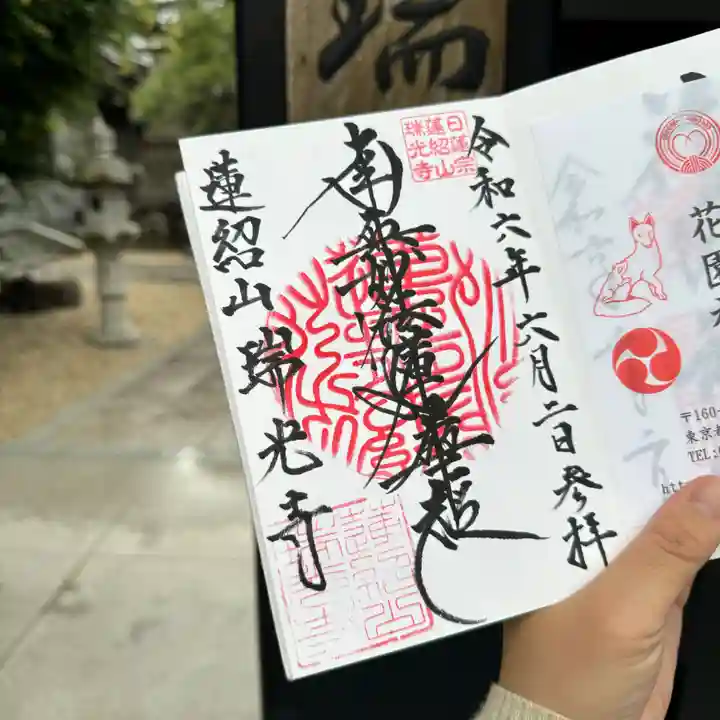 瑞
令和六年六月二日参拝
日蓮宗
蓮紹山
瑞光寺
南無妙法蓮華経
蓮紹山瑞光寺
花園
〒160-
東京都
TEL:0
htt